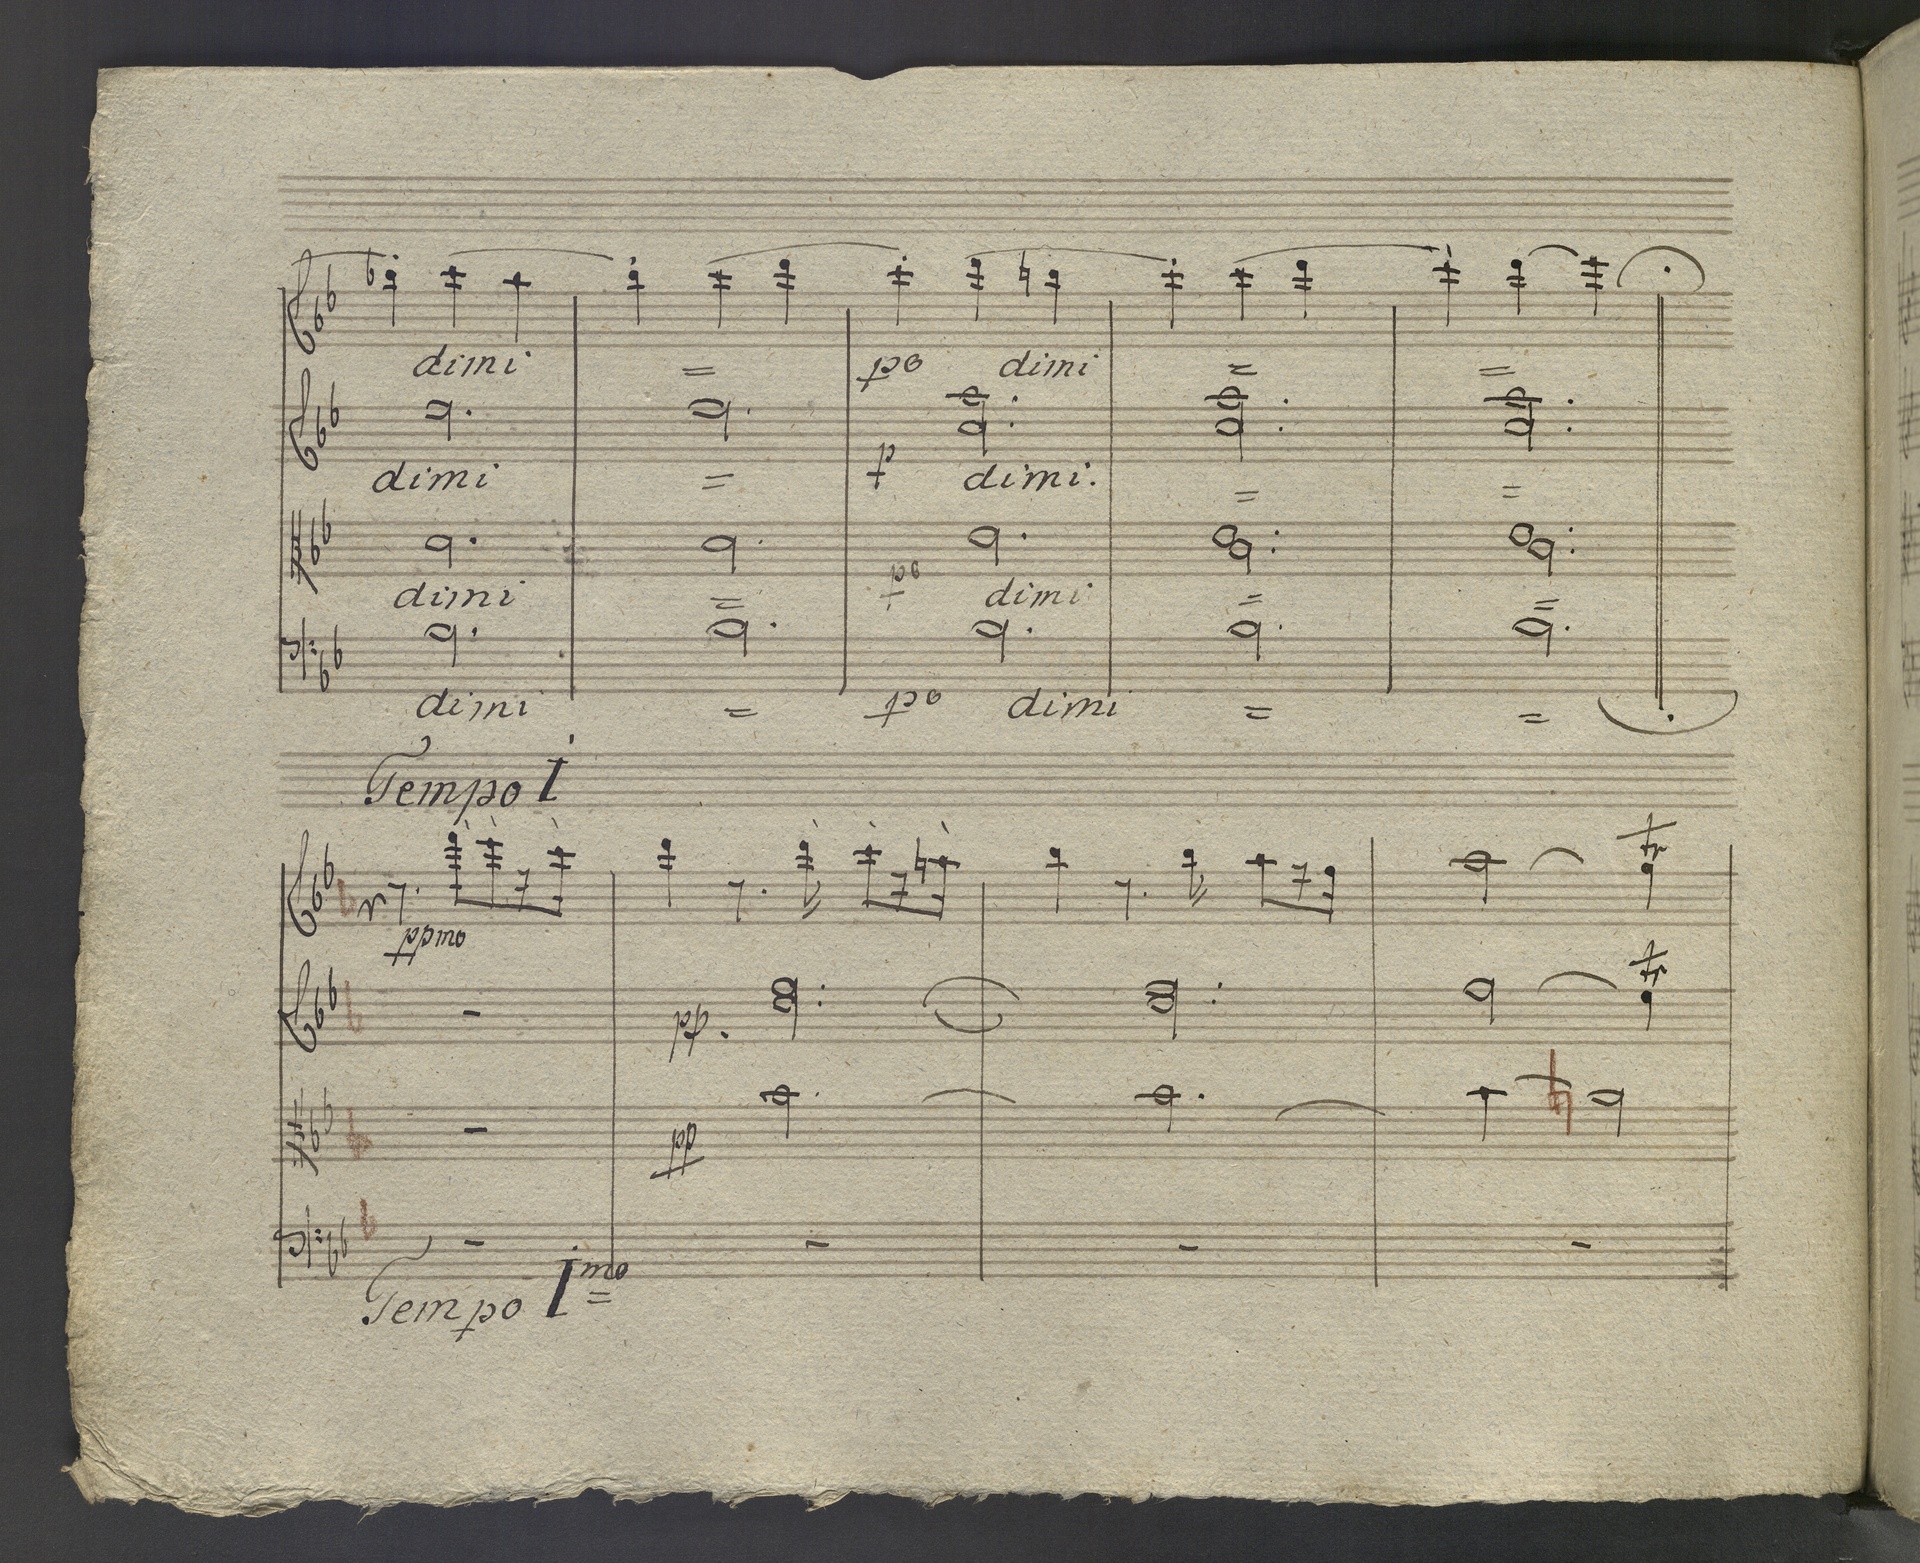 dimi = po dimi = =
dimi = p dimi. = =
dimi = po dimi = =
dimi = po dimi = =
Tempo I
tr
ppmo
tr
pp.
pp
Tempo Imo =